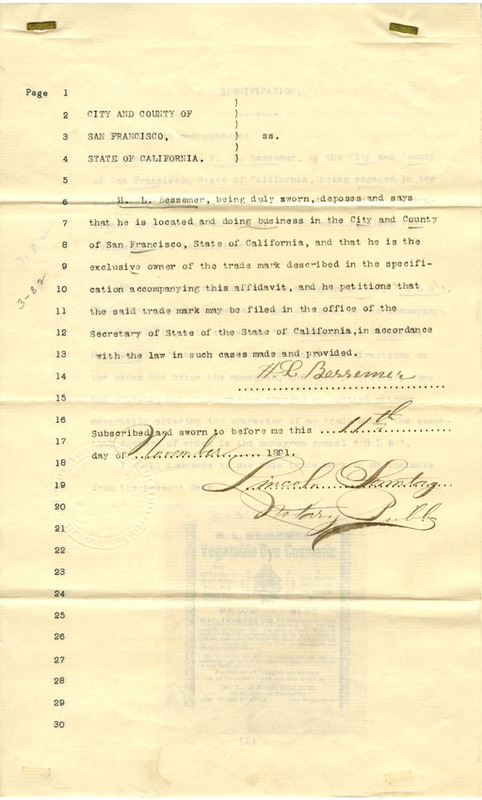 Page 1
2 CITY AND COUNTY OF )
3 SAN FRANCISCO, ) ss.
4 STATE OF CALIFORNIA. )
5
6 H. L. Bessemer, being duly sworn, deposes and says
7 that he is located and doing business in the City and County
8 of San Francisco, State of California, and that he is the
9 exclusive owner of the trade mark described in the specifi-
10 cation accompanying this affidavit, and he petitions that
11 the said trade mark may be filed in the office of the
12 Secretary of State of the State of California, in accordance
13 with the law in such cases made and provided.
14 H L Bessemer
15
16 Subscribed and sworn to before me this 11th
17
18 day of November 1891.
19 Lincoln Sonntag
20 Notary Public
21
22
23
24
25
26
27
28
29
30
3-82
Vegetable Dye Cosmetic
(1)